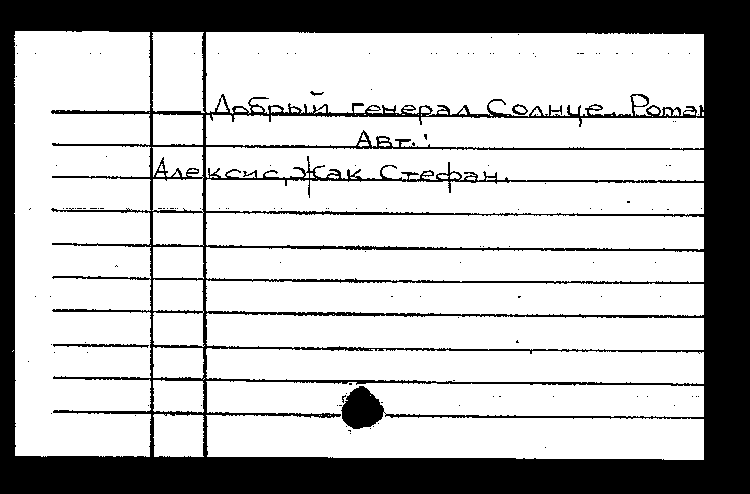 Добрый генерал Солнце. Роман
Авт.:
Алексис, Жак Стефан.